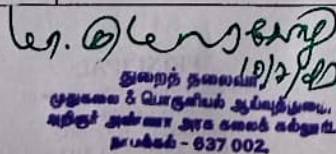 துறைத் தலைவர்
முதுகலை & பொருளியல் ஆய்வுத்துறை,
அறிஞர் அண்ணா அரசு கலைக் கல்லூரி,
நாமக்கல் - 637 002.